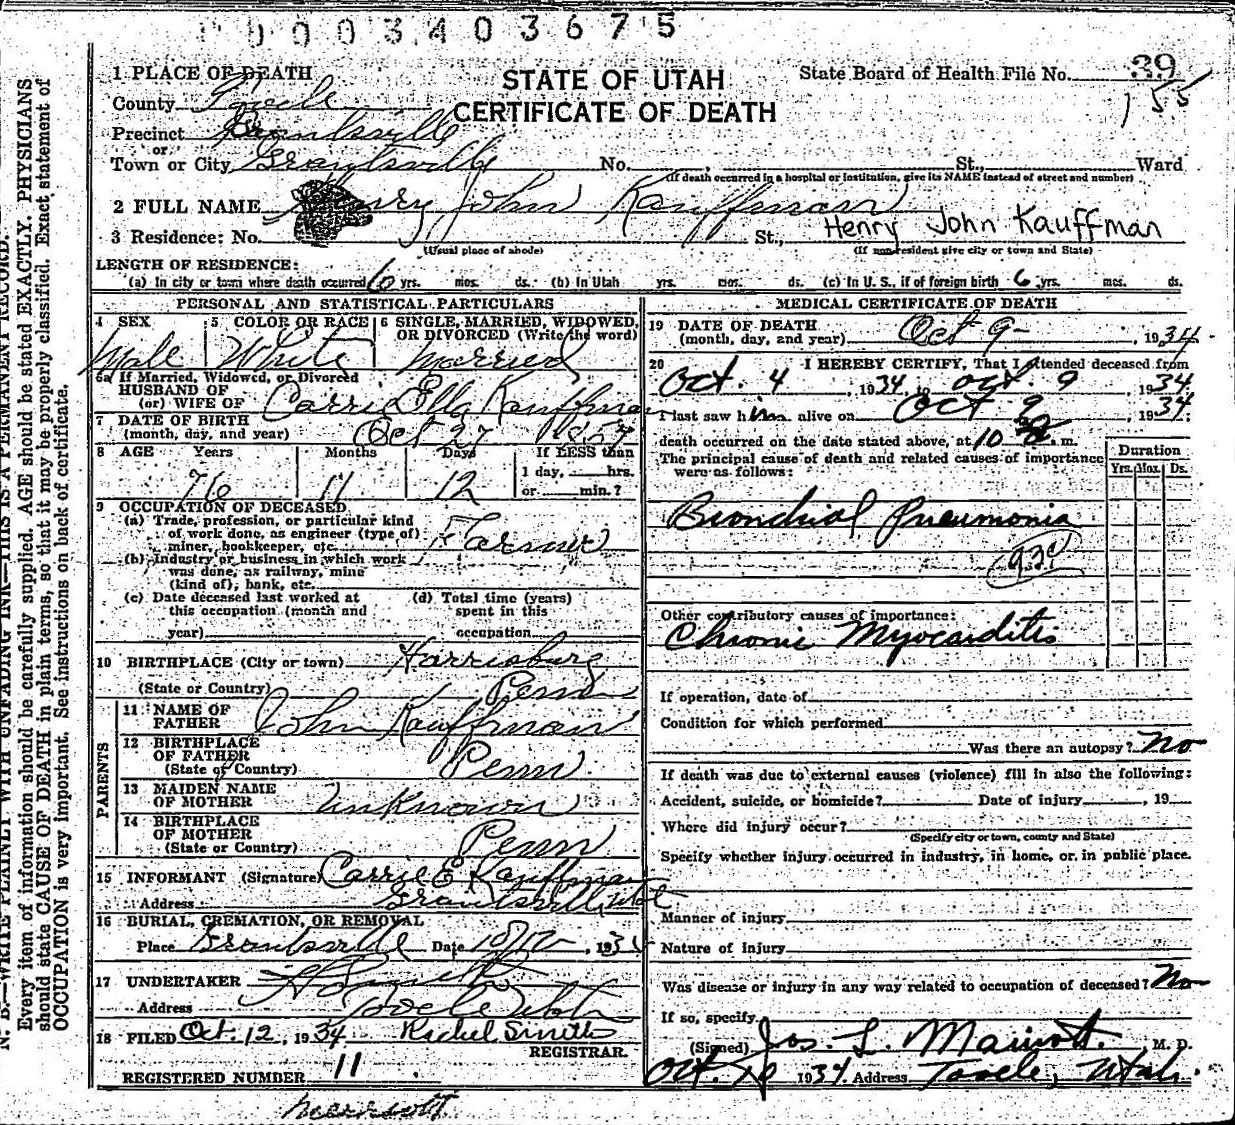 0003403675
STATE OF UTAH
CERTIFICATE OF DEATH
State Board of Health File No. 39
155
1 PLACE OF DEATH
County Tooele
Precinct Grantsville
or
Town or City Grantsville No. , St., Ward
(If death occurred in a hospital or institution, give its NAME instead of street and number)
2 FULL NAME Henry John Kauffman
Henry John Kauffman
3 Residence: No. St.,
(Usual place of abode) (If nonresident give city or town and State)
LENGTH OF RESIDENCE:
(a) In city or town where death occurred 6 yrs. mos. ds. (b) In Utah yrs. mos. ds. (c) In U. S., if of foreign birth 6 yrs. mos. ds.
PERSONAL AND STATISTICAL PARTICULARS
4 SEX 5 COLOR OR RACE 6 SINGLE, MARRIED, WIDOWED, OR DIVORCED (Write the word)
Male White Married
6a If Married, Widowed, or Divorced
HUSBAND OF
(or) WIFE OF Carrie Ella Kauffman
7 DATE OF BIRTH
(month, day, and year) Oct 27 1857
8 AGE Years Months Days If LESS than
1 day, hrs.
76 11 12 or min.?
9 OCCUPATION OF DECEASED
(a) Trade, profession, or particular kind
of work done, as engineer (type of)
miner, bookkeeper, etc. Farmer
(b) Industry or business in which work
was done, as railway, mine
(kind of), bank, etc.
(c) Date deceased last worked at (d) Total time (years)
this occupation (month and spent in this
year) occupation
10 BIRTHPLACE (City or town) Harrisburg
(State or Country) Penn
PARENTS
11 NAME OF
FATHER John Kauffman
12 BIRTHPLACE
OF FATHER
(State of Country) Penn
13 MAIDEN NAME
OF MOTHER Unknown
14 BIRTHPLACE
OF MOTHER
(State or Country) Penn
15 INFORMANT (Signature) Carrie E. Kauffman
Address Grantsville, Utah
16 BURIAL, CREMATION, OR REMOVAL
Place Grantsville Date 10/12, 193
17 UNDERTAKER
Address Tooele Utah
18 FILED Oct. 12, 1934 Rachel Smith
REGISTRAR.
REGISTERED NUMBER 11
MEDICAL CERTIFICATE OF DEATH
19 DATE OF DEATH
(month, day, and year) Oct 9 - , 1934
20 I HEREBY CERTIFY, That I attended deceased from
Oct. 4 , 1934, to Oct. 9 , 1934
I last saw him alive on Oct 9 , 1934.
death occurred on the date stated above, at 10 m.
The principal cause of death and related causes of importance
were as follows:
Duration
Yrs. Mos. Ds.
Bronchial Pneumonia
Other contributory causes of importance:
Chronic Myocarditis
If operation, date of
Condition for which performed
Was there an autopsy? No
If death was due to external causes (violence) fill in also the following:
Accident, suicide, or homicide? Date of injury , 19
Where did injury occur?
(Specify city or town, county and State)
Specify whether injury occurred in industry, in home, or in public place.
Manner of injury
Nature of injury
Was disease or injury in any way related to occupation of deceased? No
If so, specify
(Signed) Jos. L. , M. D.
Oct. 1934 Address Tooele, Utah.
N. B.—WRITE PLAINLY WITH UNFADING INK—THIS IS A PERMANENT RECORD.
Every item of information should be carefully supplied. AGE should be stated EXACTLY. PHYSICIANS
should state CAUSE OF DEATH in plain terms, so that it may be properly classified. Exact statement of
OCCUPATION is very important. See instructions on back of certificate.